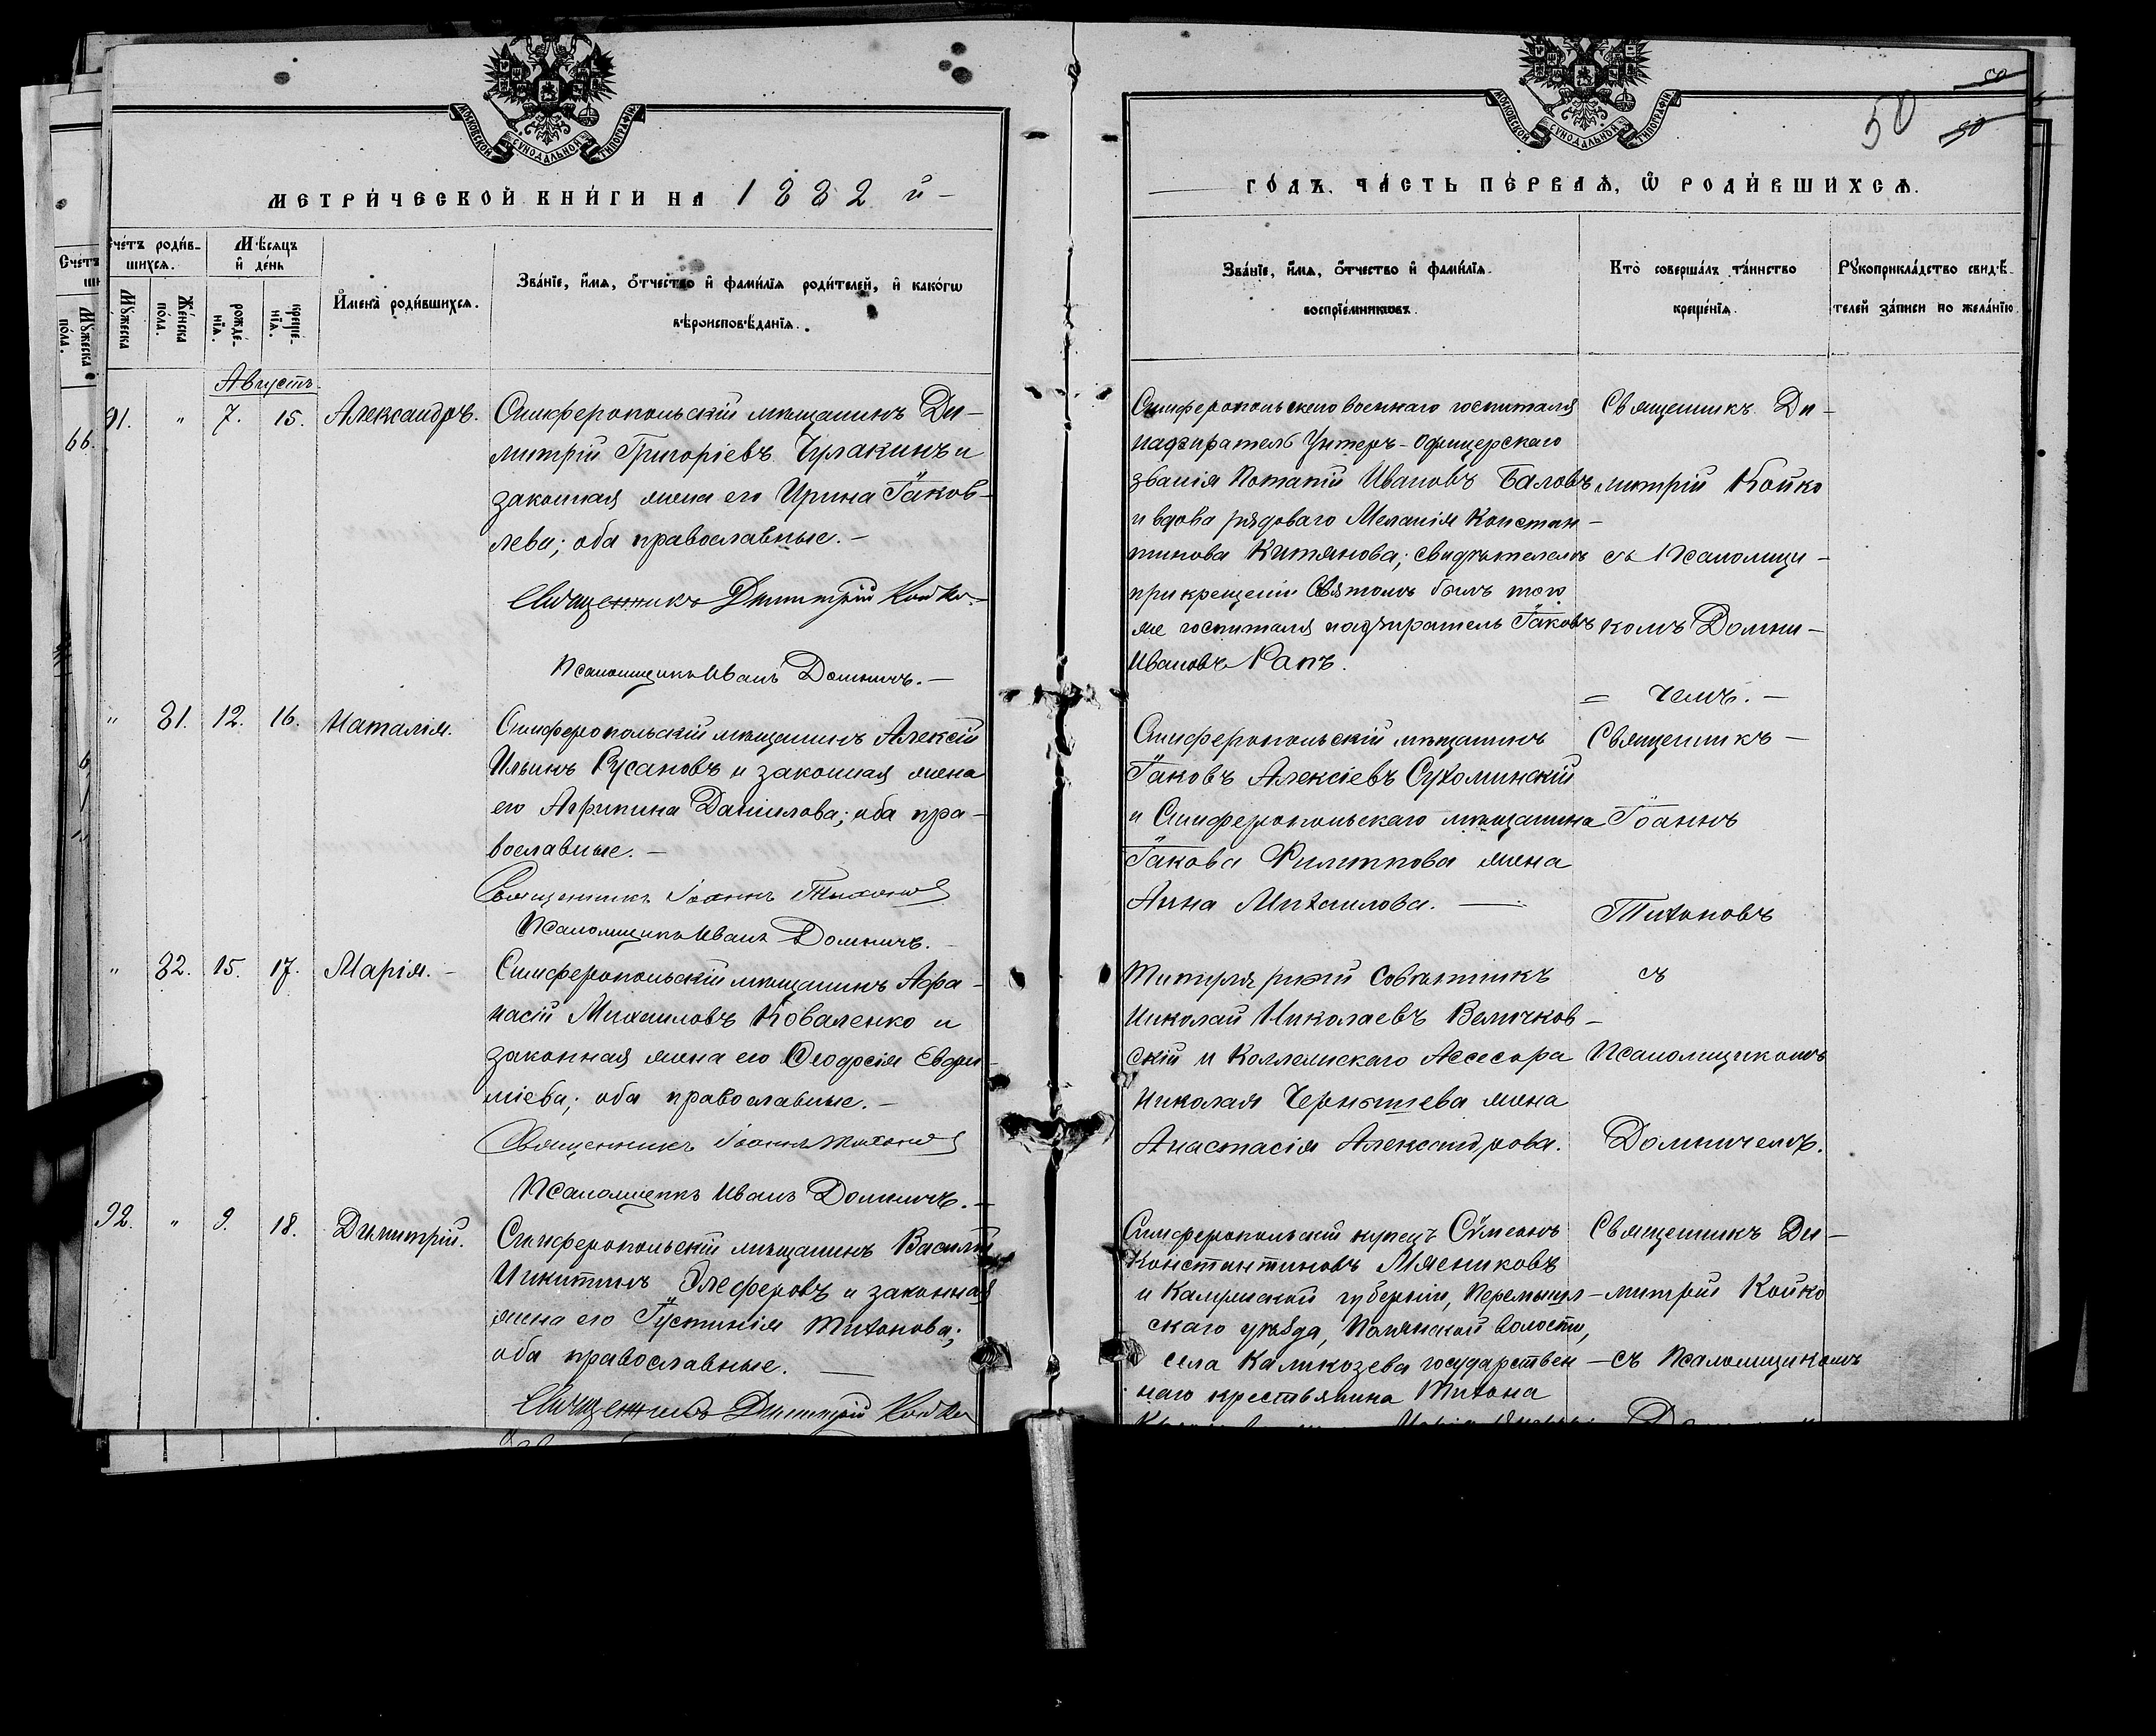 МОСКОВСКОЙ СѴНОДАЛЬНОЙ ТИПОГРАФІИ
МЕТРИ́ЧЕСКОЙ КНИ́ГИ НА 1882 й
Сче́тъ роди́в-
шихсѧ.
Мѣ́сѧцъ
и҆ де́нь
Мꙋ́жеска
по́ла.
Же́нска
по́ла.
рожде́-
нїѧ.
креще́-
нїѧ.
И҆мена̀ роди́вшихсѧ.
Зва́нїе, и҆́мѧ, ѻ҆́тчество и҆ фами́лїѧ роди́телей, и҆ како́гѡ
вѣроисповѣ́данїѧ.
Августъ.
91. " 7. 15. Александръ.
Симферопольскій мѣщанинъ Ди-
митрій Григоріевъ Чулакинъ и
законная жена его Ирина Іаков-
лева; оба православные. –
Священникъ Димитрій Койко. –
Псаломщикъ Иванъ Домничъ. –
" 81. 12. 16. Наталія.
Симферопольскій мѣщанинъ Алексій
Ильинъ Русановъ и законная жена
его Агрипина Даніилова; оба пра-
вославные. –
Священникъ Іоаннъ Тихоновъ
Псаломщикъ Иванъ Домничъ. –
" 82. 15. 17. Марія. –
Симферопольскій мѣщанинъ Афа-
насій Михаиловъ Коваленко и
законная жена его Ѳеодосія Евѳи-
міева; оба православные. –
Священникъ Іоаннъ Тихоновъ
Псаломщикъ Иванъ Домничъ. –
92. " 9. 18. Димитрій.
Симферопольскій мѣщанинъ Василій
Никитинъ Элеферовъ и законная
жена его Іустинія Тихонова;
оба православные. –
Священникъ Димитрій Койко
МОСКОВСКОЙ СѴНОДАЛЬНОЙ ТИПОГРАФІИ
50
50
50
ГО́ДЪ, ЧА́СТЬ ПЕ́РВАѦ, Ѽ РОДИ́ВШИХСѦ.
Зва́нїе, и҆́мѧ, ѻ҆́тчество и҆ фами́лїѧ
воспрїе́мникѡвъ.
Кто̀ соверша́лъ та́инство
креще́нїѧ.
Рꙋкоприкла́дство свидѣ́-
телей за́писи по жела́нїю.
Симферопольскаго военнаго госпиталя
надзиратель Унтеръ-Офицерскаго
званія Потапій Ивановъ Баловъ
и вдова рядоваго Меланія Констан-
тинова Китянова; свидѣтелемъ
при крещеніи Святомъ былъ того
же госпиталя надзиратель Іаковъ
Ивановъ Рапъ.
Священникъ Ди-
митрій Койко
съ Псаломщи-
комъ Домни-
= чемъ. –
Симферопольскій мѣщанинъ
Іаковъ Алексіевъ Сухоминскій
и Симферопольскаго мѣщанина
Іакова Филиппова жена
Анна Михаилова. –
Священникъ –
Іоаннъ
Тихоновъ
Титулярный Совѣтникъ
Николай Николаевъ Величков-
скій и Коллежскаго Ассесора
Николая Чернышева жена
Анастасія Александрова.
съ
Псаломщикомъ
Домничемъ.
Симферопольскій купецъ Сѵмеонъ
Константиновъ Мясниковъ
и Калужской губерніи, Перемышл-
скаго уѣзда, Полянской волости,
села Калькозева государствен-
наго крестьянина Тихона
Священникъ Ди-
митрій Койко
съ Псаломщикомъ